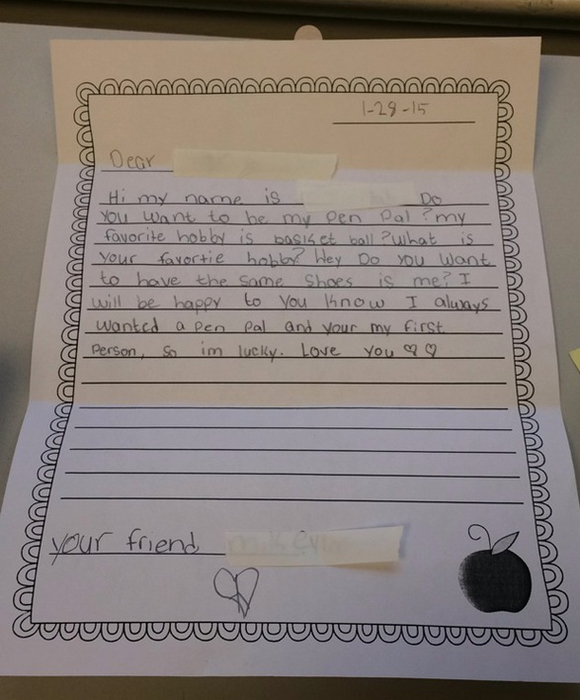 1-28-15
Dear
Hi my name is Do
you want to be my pen pal? my
favorite hobby is basket ball? what is
your favortie hobby? Hey Do you want
to have the same shoes is me? I
will be happy to you know I always
wanted a pen pal and your my first
person, so im lucky. Love you ♡♡
your friend